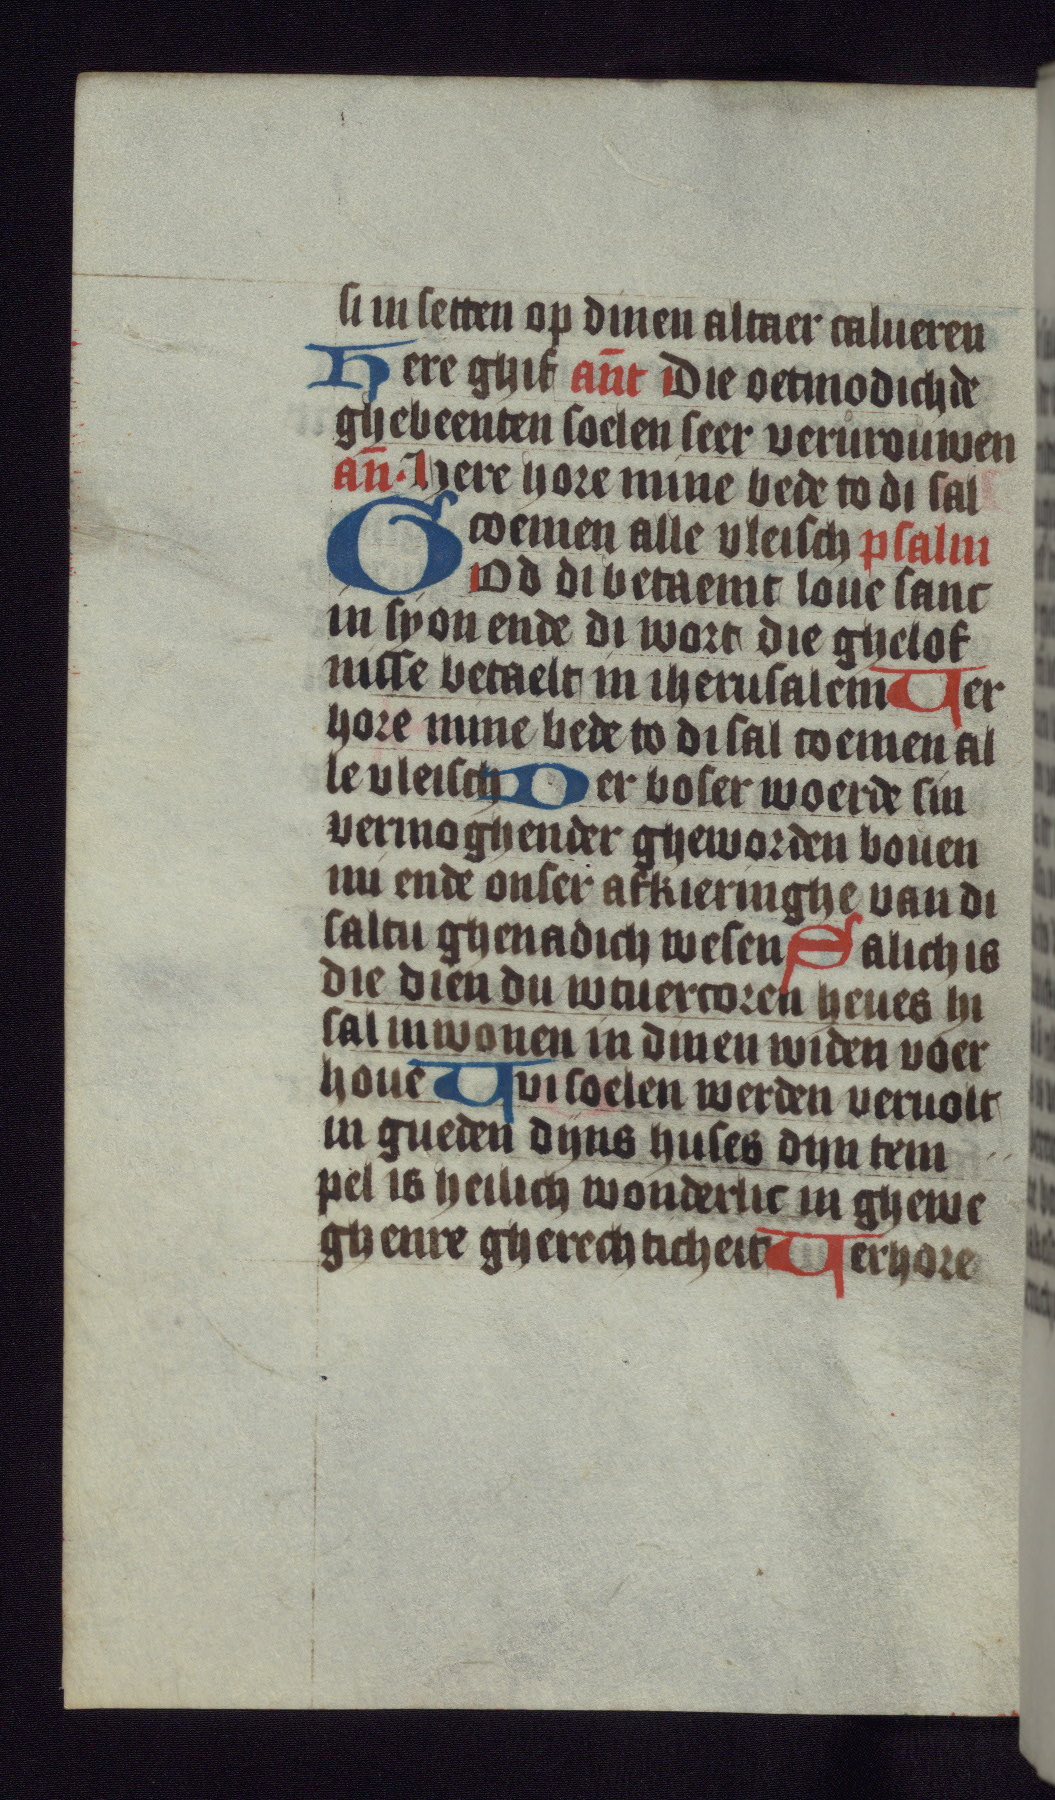 si in setten op dinen altaer calueren
Here ghif an̄t Die oetmodichde
ghebeenten soelen seer veruroůwen
an̄. Here hore mine bede to di sal
coemen alle vleisch psalm
God di betaemt loue sanc
in syon ende di wort die ghelof
nisse betaelt in iherusalem Ver
hore mine bede to di sal coemen al
le vleisch Der boser woerde sin
vermoghender gheworden bouen
mi ende onser afkieringhe van di
saltu ghenadich wesen Salich is
die dien du wtuercoren heues hi
sal inwonen in dinen widen voer
houe Wi soelen werden veruolt
in gueden dijns huses dijn tem
pel is heilich wonderlic in ghewe
ghenre gherechticheit Verhore